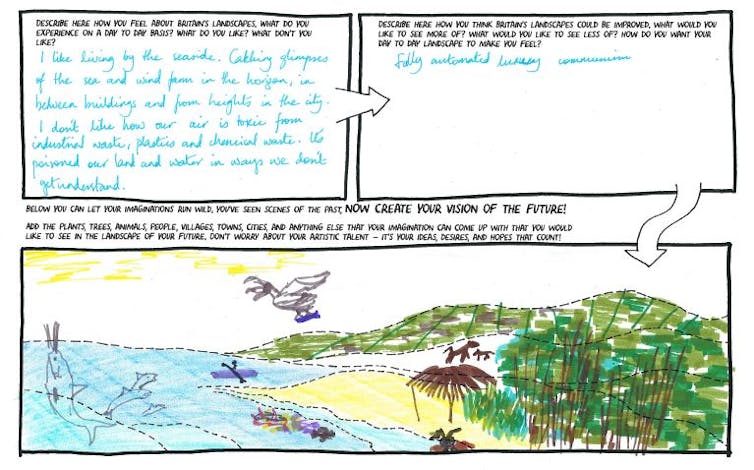 DESCRIBE HERE HOW YOU FEEL ABOUT BRITAIN'S LANDSCAPES, WHAT DO YOU
EXPERIENCE ON A DAY TO DAY BASIS? WHAT DO YOU LIKE? WHAT DON'T YOU
LIKE?
I like living by the seaside. Catching glimpses
of the sea and wind farm in the horizon, in
between buildings and from heights in the city.
I don't like how our air is toxic from
industrial waste, plastics and chemical waste. It's
poisoned our land and water in ways we don't
yet understand.
DESCRIBE HERE HOW YOU THINK BRITAIN'S LANDSCAPES COULD BE IMPROVED, WHAT WOULD YOU
LIKE TO SEE MORE OF? WHAT WOULD YOU LIKE TO SEE LESS OF? HOW DO YOU WANT YOUR
DAY TO DAY LANDSCAPE TO MAKE YOU FEEL?
Fully automated luxury communism
BELOW YOU CAN LET YOUR IMAGINATIONS RUN WILD, YOU'VE SEEN SCENES OF THE PAST, NOW CREATE YOUR VISION OF THE FUTURE!
ADD THE PLANTS, TREES, ANIMALS, PEOPLE, VILLAGES, TOWNS, CITIES, AND ANYTHING ELSE THAT YOUR IMAGINATION CAN COME UP WITH THAT YOU WOULD
LIKE TO SEE IN THE LANDSCAPE OF YOUR FUTURE. DON'T WORRY ABOUT YOUR ARTISTIC TALENT – IT'S YOUR IDEAS, DESIRES, AND HOPES THAT COUNT!